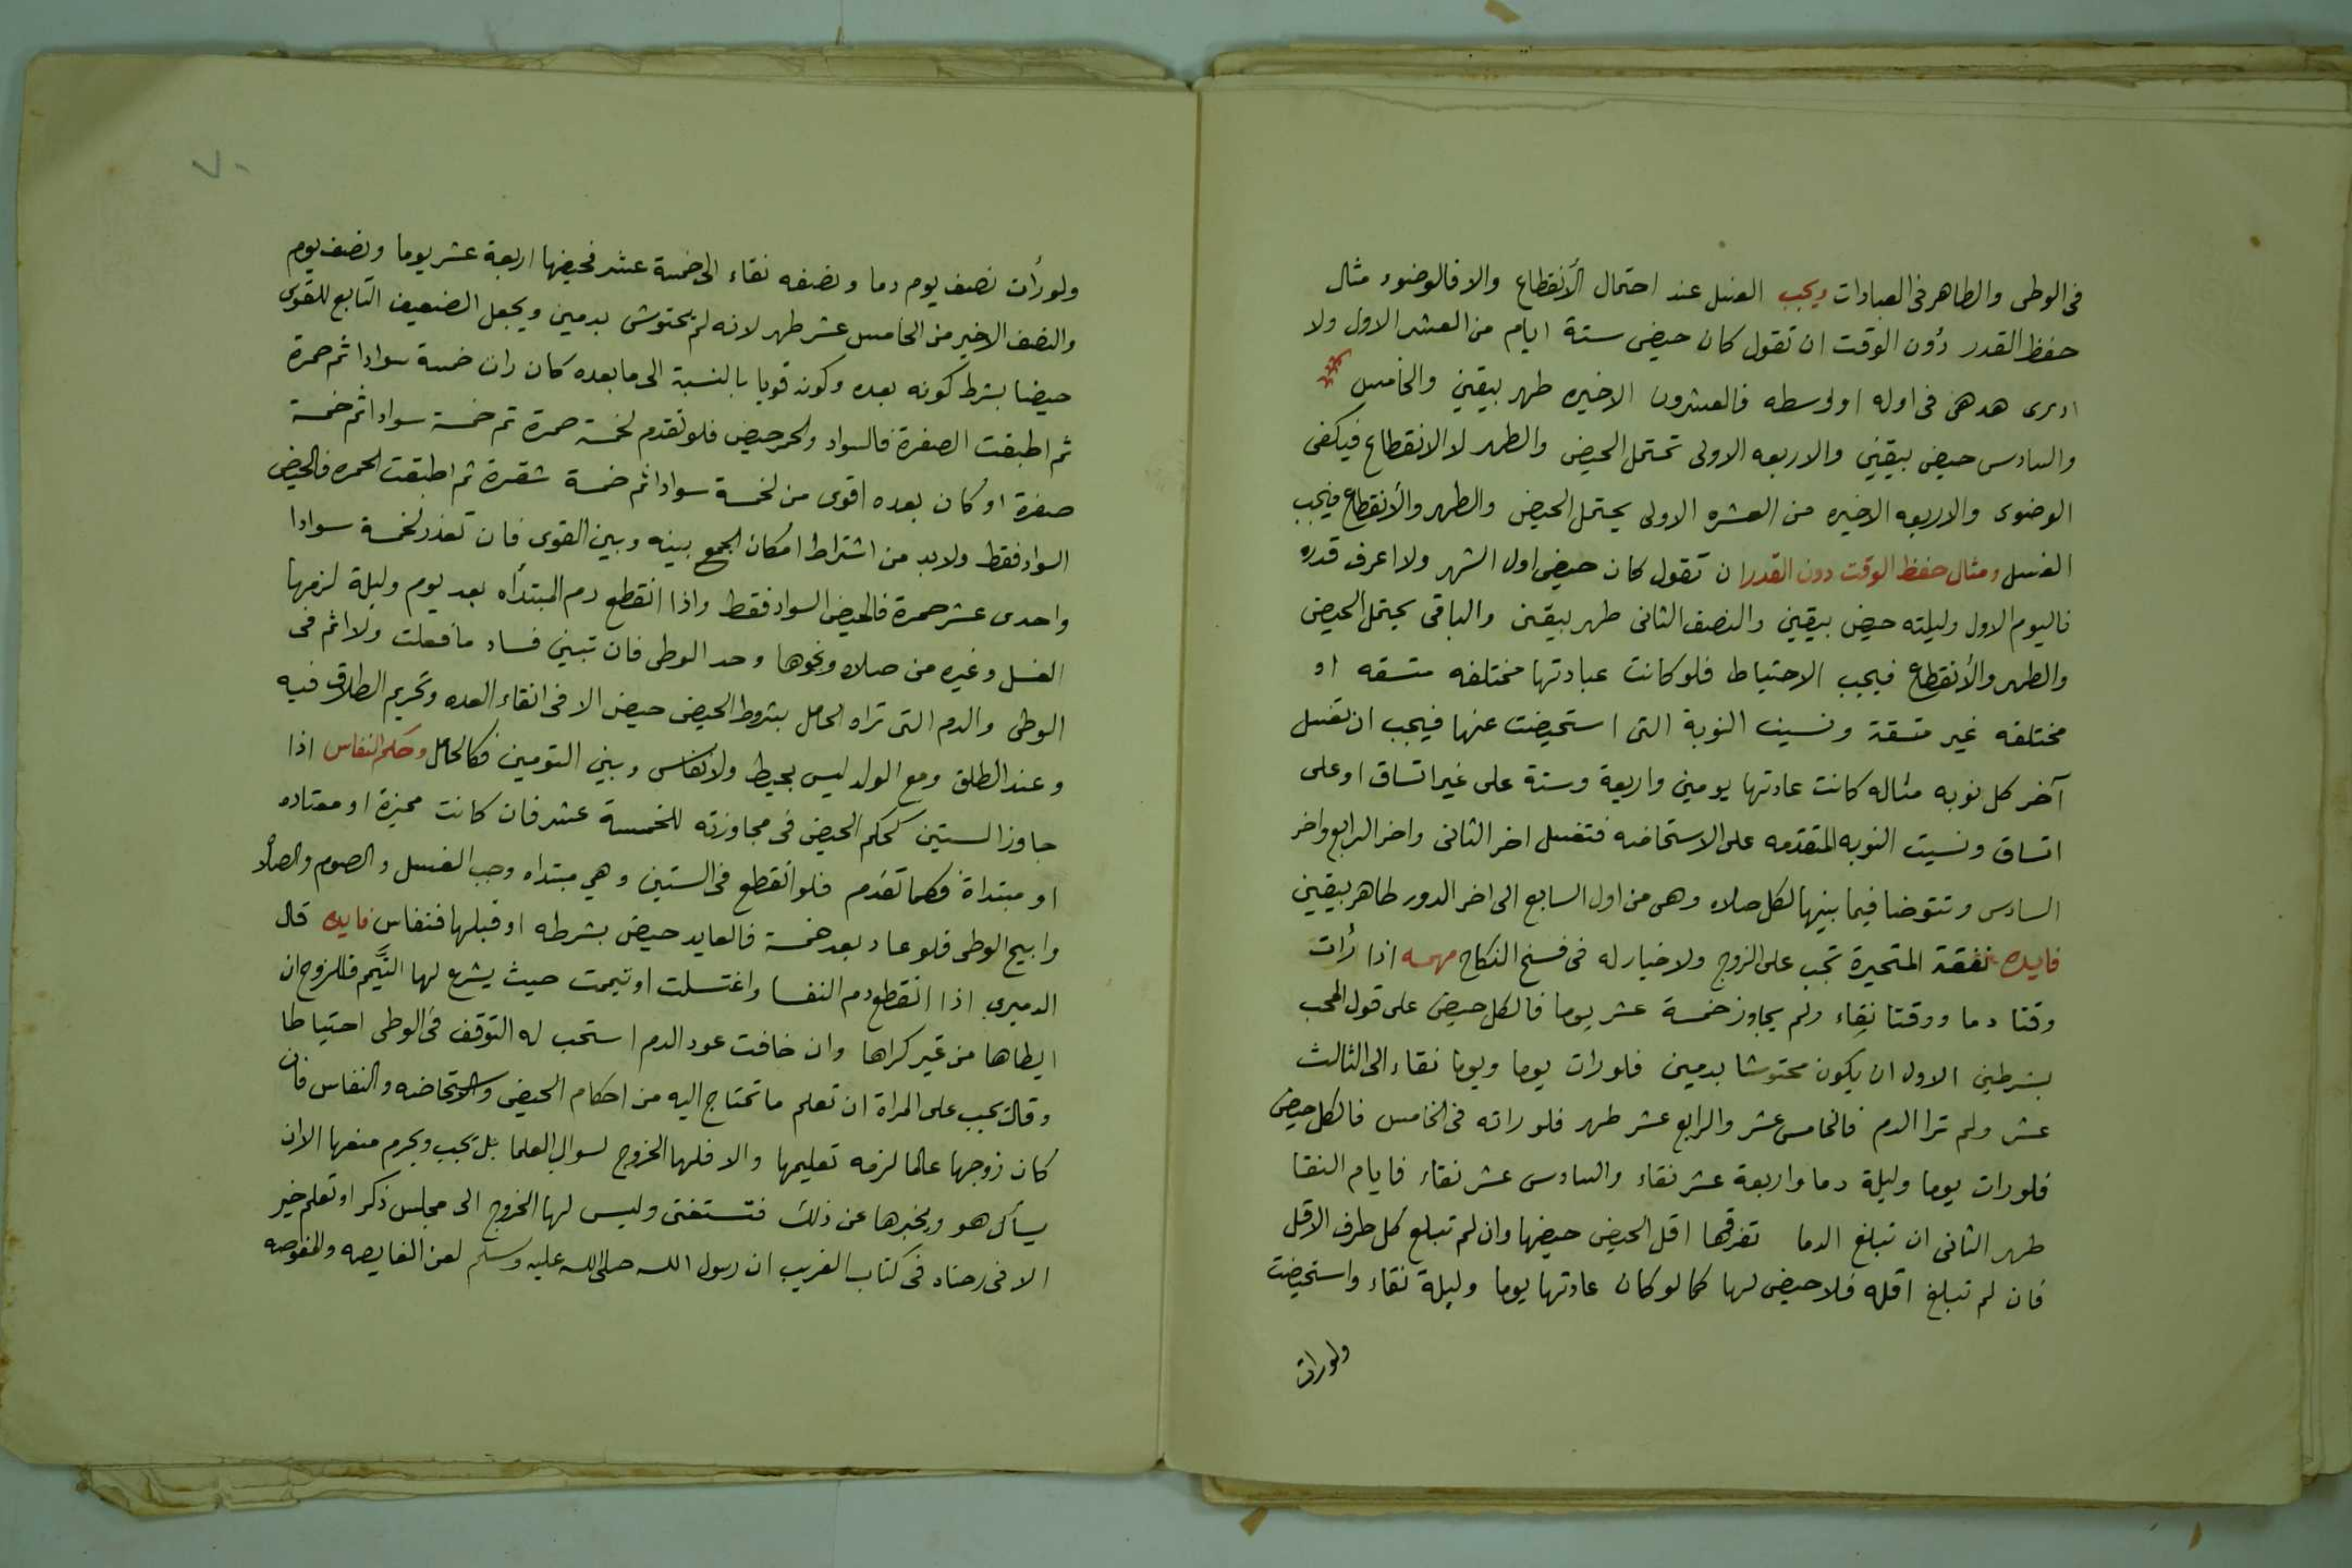 فى الوطى والطاهر فى العبادات ويجب الغسل عند احتمال الأنقطاع والا فالوضوء مثال
حفظ القدر دون الوقت ان تقول كان حيضى ستة ايام من العشر الاول ولا
ادرى هد هى فى اوله او اوسطه فالعشرون الاخيره طهر بيقين والخامس
والسادس حيض بيقين والاربعه الاولى تحتمل الحيض والطهر لا الانقطاع فيكفى
الوضوى والاربعه الاخيره من العشره الاولى يحتمل الحيض والطهر والأنقطاع فيجب
الغسل ومثال حفظ الوقت دون القدر ان تقول كان حيضى اول الشهر ولا اعرف قدره
فاليوم الاول وليلته حيض بيقين والنصف الثانى طهر بيقين والباقى يحتمل الحيض
والطهر والأنقطاع فيجب الاحتياط فلو كانت عبادتها مختلفه متسقه او
مختلفه غير متسقة ونسيت النوبة التى استحيضت عنها فيجب ان تغسل
آخر كل نوبه مثاله كانت عادتها يومين واربعة وستة على غير اتساق او على
اتساق ونسيت النوبه المتقدمه على الاستحاضه فتغسل اخر الثانى واخر الرابع واخر
السادس وتتوضا فيما بينها لكل صلاه وهى من اول السابع الى اخر الدور طاهر بيقين
فايده نفقة المتحيرة تجب على الزوج ولا خيار له فى فسخ النكاح مهمه اذا رأت
وقتا دما ووقتا نقاء ولم يجاوز خمسة عشر يوما فالكل حيض على قول
بشرطين الاول ان يكون محتوشا بدمين فلو رات يوما ويوما نقاء الى الثالث
عشر ولم ترا الدم فالخامس عشر والرابع عشر طهر فلو راته فى الخامس فالكل حيض
فلو رات يوما وليلة دما واربعة عشر نقاء والسادس عشر نقاء فايام النقا
طهر الثانى ان تبلغ الدما تفرقها اقل الحيض حيضها وان لم تبلع كل طرف الاقل
فان لم تبلغ اقله فلا حيض لها كما لو كان عادتها يوما وليلة نقاء واستحيضت
ولو رات
٧٠
ولو رأت نصف يوم دما ونصفه نقاء الى خمسة عشر فحيضها اربعة عشر يوما ونصف يوم
والنصف الاخير من الخامس عشر طهر لانه لم يحتوش بدمين ويجعل الضعيف التابع للقوى
حيضا بشرط كونه بعده وكونه قويا بالنسبة الى ما بعده كان رات خمسة سوادا ثم حمرة
ثم اطبقت الصفرة فالسواد والحمر حيض فلو تقدم لخمسة حمرة ثم خمسة سوادا ثم خمسة
صفرة او كان بعده اقوى من لخمسة سوادا ثم خمسة شقرة ثم اطبقت الحمره فالحيض
السواد فقط ولابد من اشتراط امكان الجمع بينه وبين القوى فان تعذر لخمسة سوادا
واحدى عشر حمرة فالحيض السواد فقط واذا انقطع دم المبتدأه بعد يوم وليلة لزمها
الغسل وغيره من صلاه ونحوها وحد الوطى فان تبين فساد ما فعلت ولا اثم فى
الوطى والدم التى تراه الحامل بشروط الحيض حيض الا فى انقاء العده وتحريم الطلاق فيه
وعند الطلق ومع الولد ليس بحيط ولا نفاس وبين التومين فكالحامل وحكم النفاس اذا
جاوز الستين كحكم الحيض فى مجاوزته للخمسة عشر فان كانت مميزة او معتاده
او مبتدأة فكما تقدم فلو انقطع فى الستين وهى مبتداه وجب الغسل والصوم والصلاه
وابيح الوطى فلو عاد بعد خمسة فالعايد حيض بشرطه او قبلها فنفاس فايده قال
الدميري اذا انقطع دم النفسا واغتسلت او تيممت حيث يشرع لها التيمم فللزوج ان
ايطاها من غير كراها وان خافت عود الدم استحب له التوقف فى الوطى احتياطا
وقال يجب على المراة ان تعلم ما تحتاج اليه من احكام الحيض والاستحاضه والنفاس فان
كان زوجها عالما لزمه تعليمها والا فلها الخروج لسوال العلما بل يجب ويحرم منعها الا ان
يسأل هو ويخبرها عن ذلك فتستغنى وليس لها الخروج الى مجلس ذكر او تعلم خير
الا فى رضاه فى كتاب الغريب ان رسول الله صلى الله عليه وسلم لعن الغايصه والمغوصه